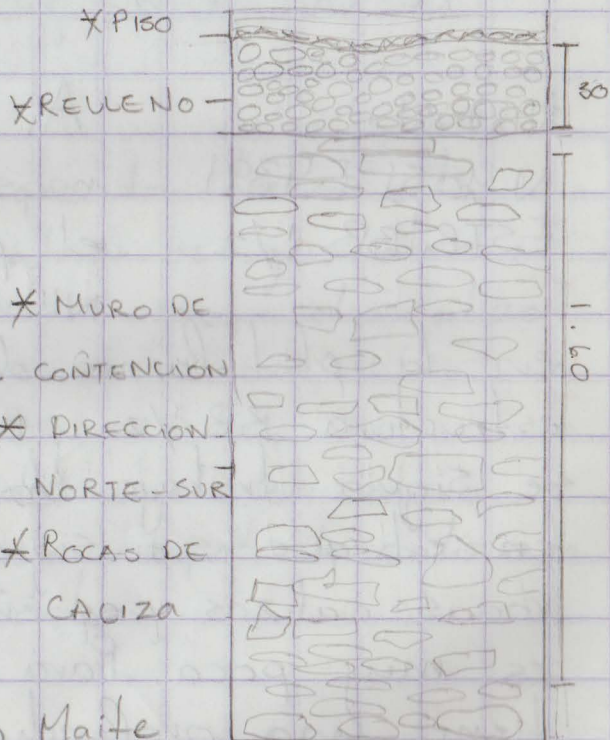 * PISO
* RELLENO
30
* MURO DE
CONTENCION
1.60
* DIRECCION
NORTE-SUR
* ROCAS DE
CALIZA
Maite